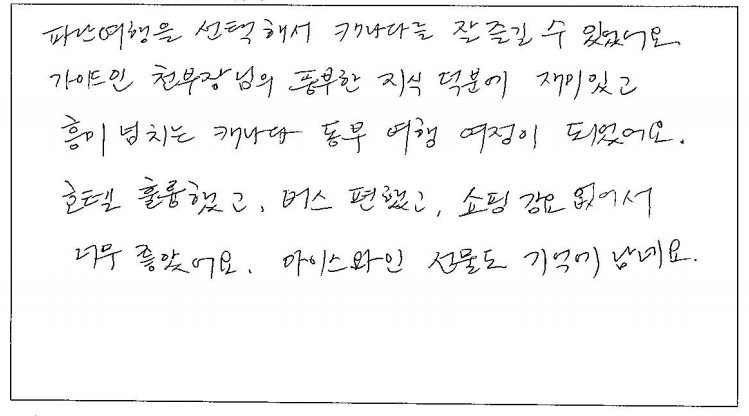 파란여행을 선택해서 캐나다를 잘 즐길 수 있었어요.
가이드인 천부장님의 풍부한 지식 덕분에 재미있고
흥미 넘치는 캐나다 동부 여행 여정이 되었어요.
호텔 훌륭했고, 버스 편했고, 쇼핑 강요 없어서
너무 좋았어요. 아이스와인 선물도 기억에 남네요.